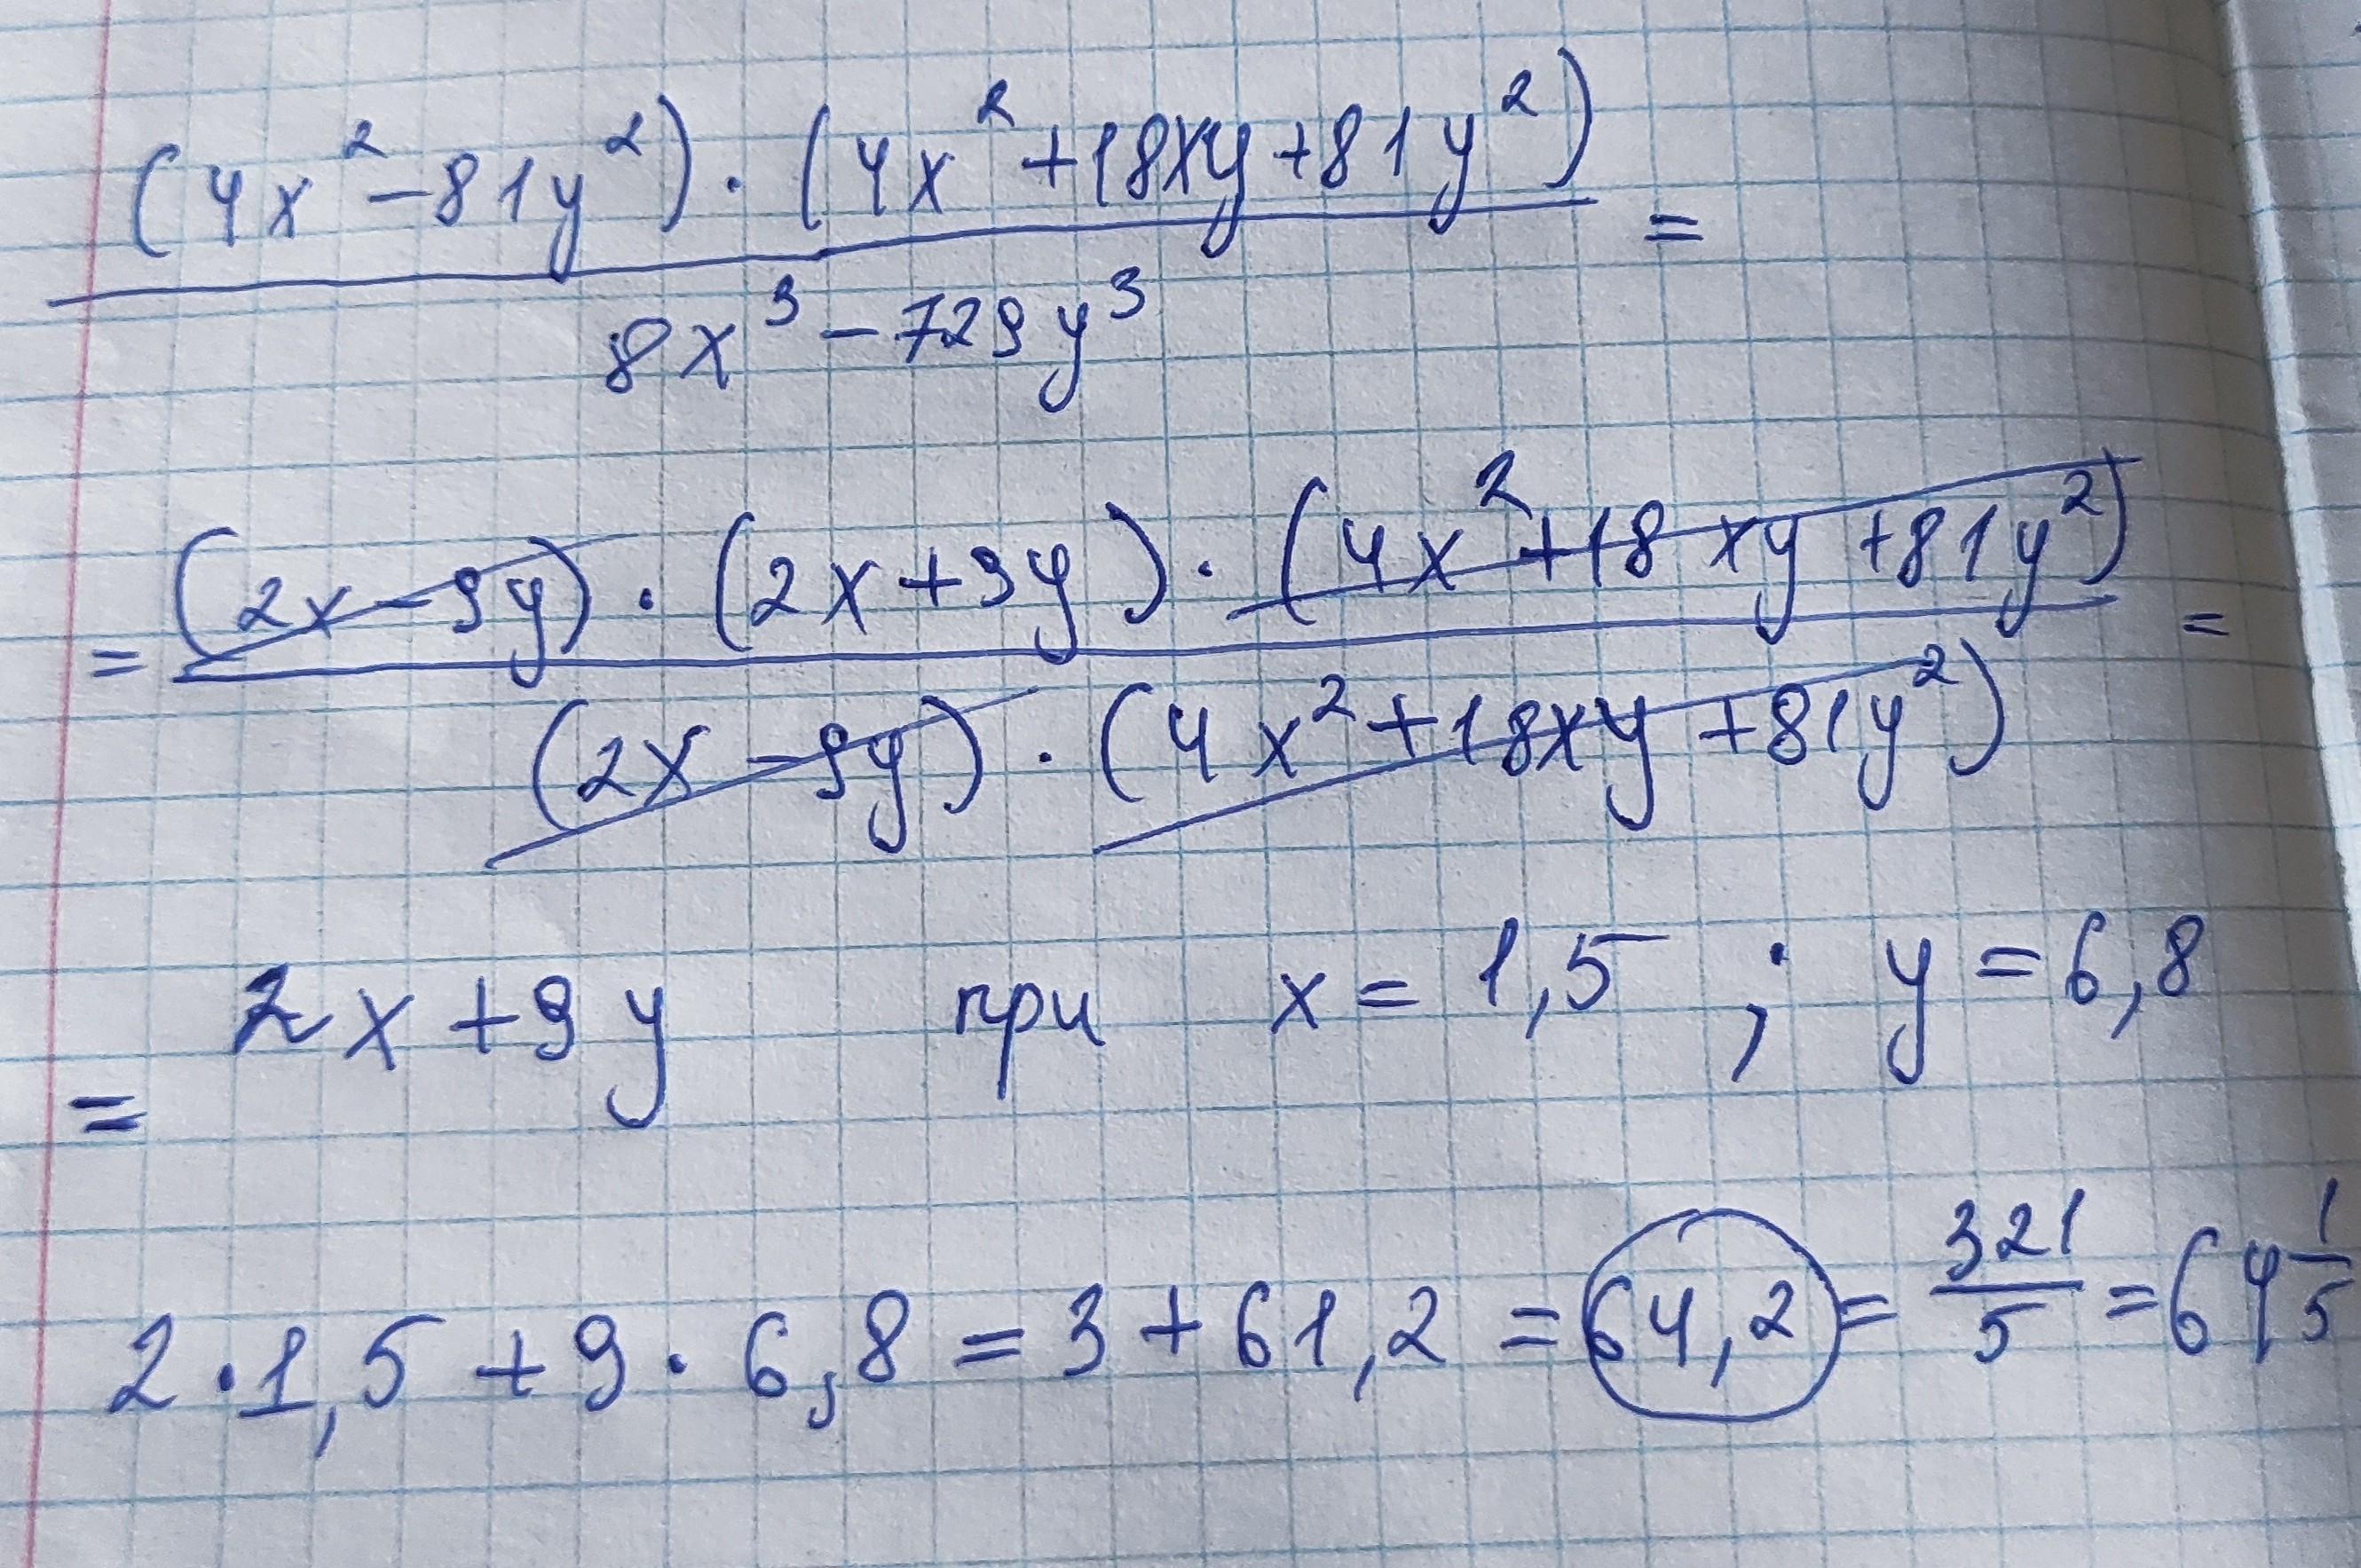 (4x² - 81y²) · (4x² + 18xy + 81y²) =
8x³ - 729y³
= (2x - 9y) · (2x + 9y) · (4x² + 18xy + 81y²) =
(2x - 9y) · (4x² + 18xy + 81y²)
= 2x + 9y при x = 1,5 ; y = 6,8
2 · 1,5 + 9 · 6,8 = 3 + 61,2 = 64,2 = 321/5 = 64 1/5